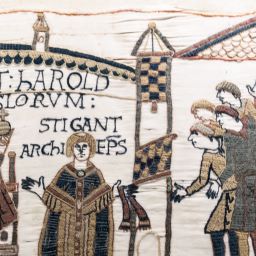 T: hAROLD
LORVM:
STIGANT
ARChI EPS